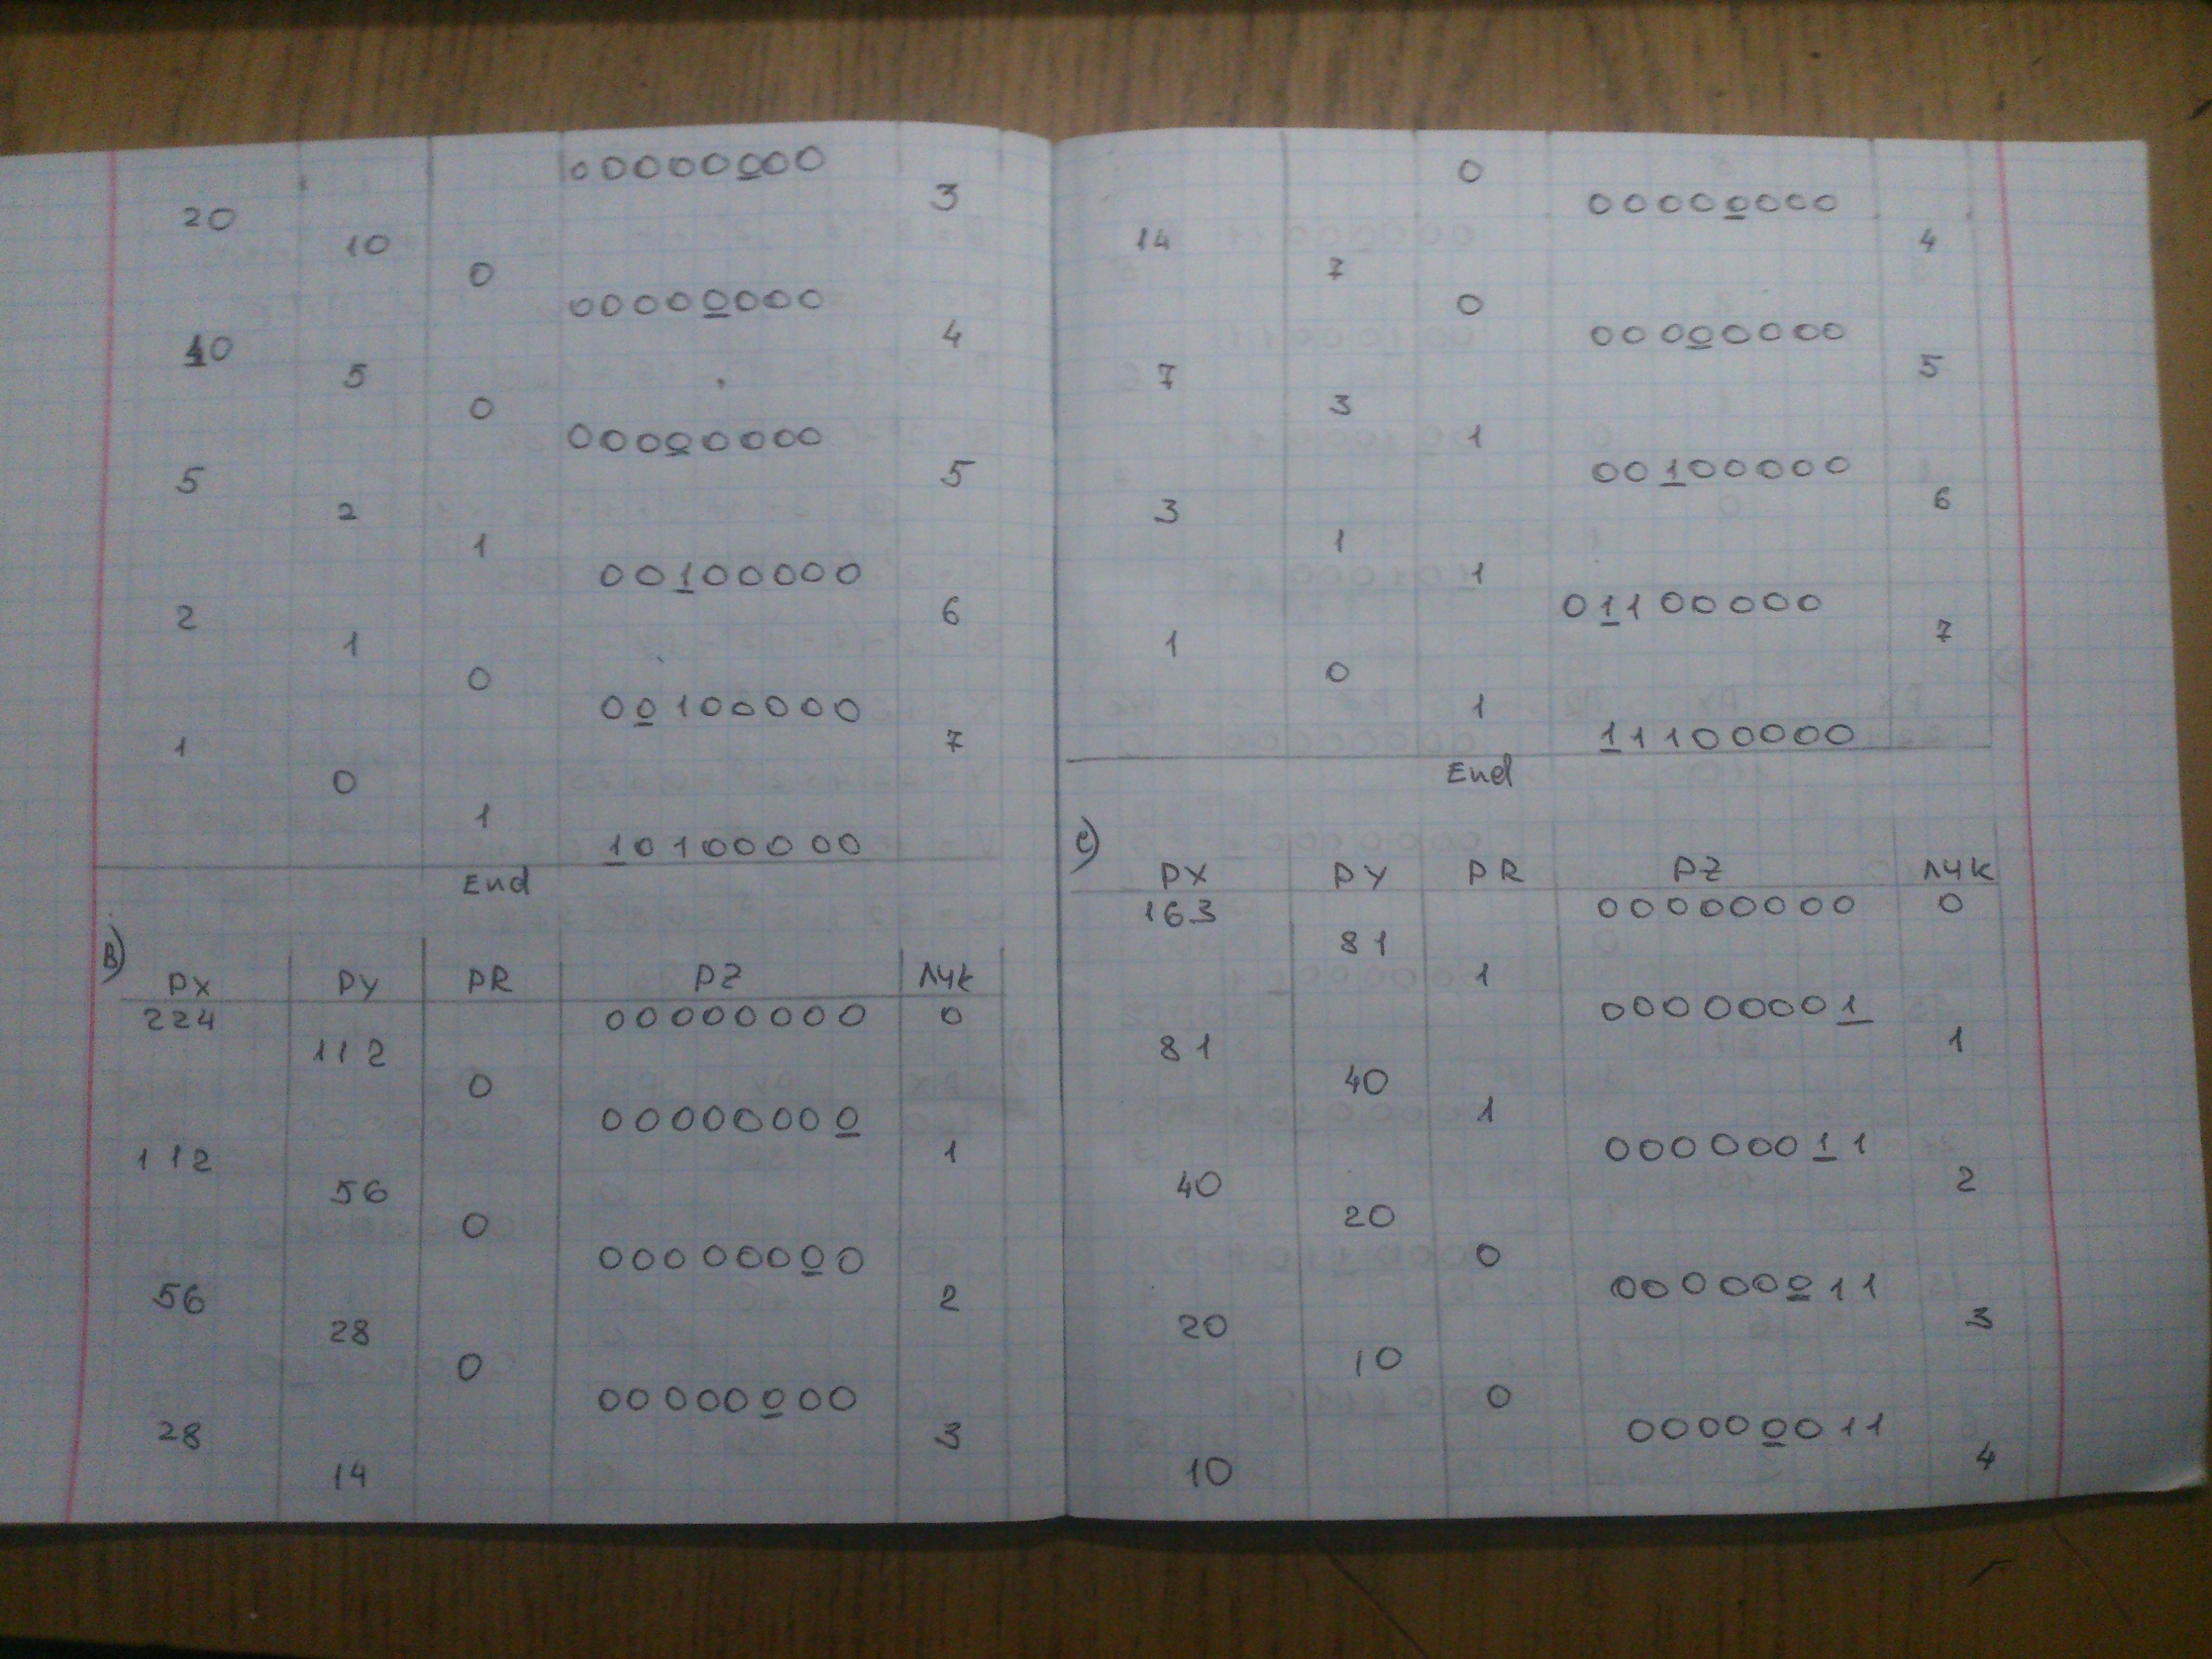 00000000
3
20
10
0
00000000
4
10
5
0
00000000
5
5
2
1
00100000
6
2
1
0
00100000
7
1
0
1
10100000
End
B)
PX PY PR PZ ЛЧК
224 00000000 0
112
0
00000000
1
112
56
0
00000000
2
56
28
0
00000000
3
28
14
0
00000000
4
14
7
0
00000000
5
7
3
1
00100000
6
3
1
1
01100000
7
1
0
1
11100000
End
C)
PX PY PR PZ ЛЧК
163 00000000 0
81
1
00000001
1
81
40
1
00000011
2
40
20
0
00000011
3
20
10
0
00000011
4
10